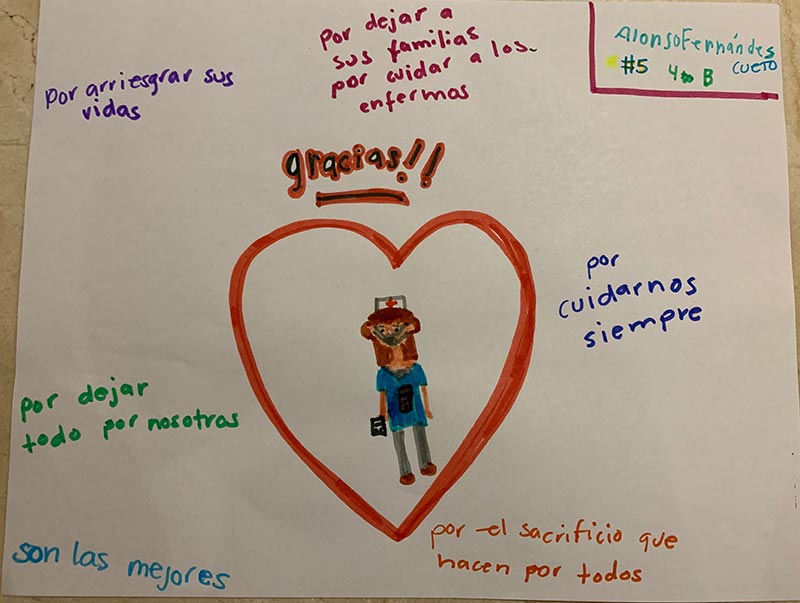 por dejar a
sus familias
por cuidar a los
enfermos
Alonso Fernández
CUETO
#5 4to B
por arriesgrar sus
vidas
gracias!!
por
cuidarnos
siempre
por dejar
todo por nosotros
por el sacrificio que
hacen por todos
son las mejores